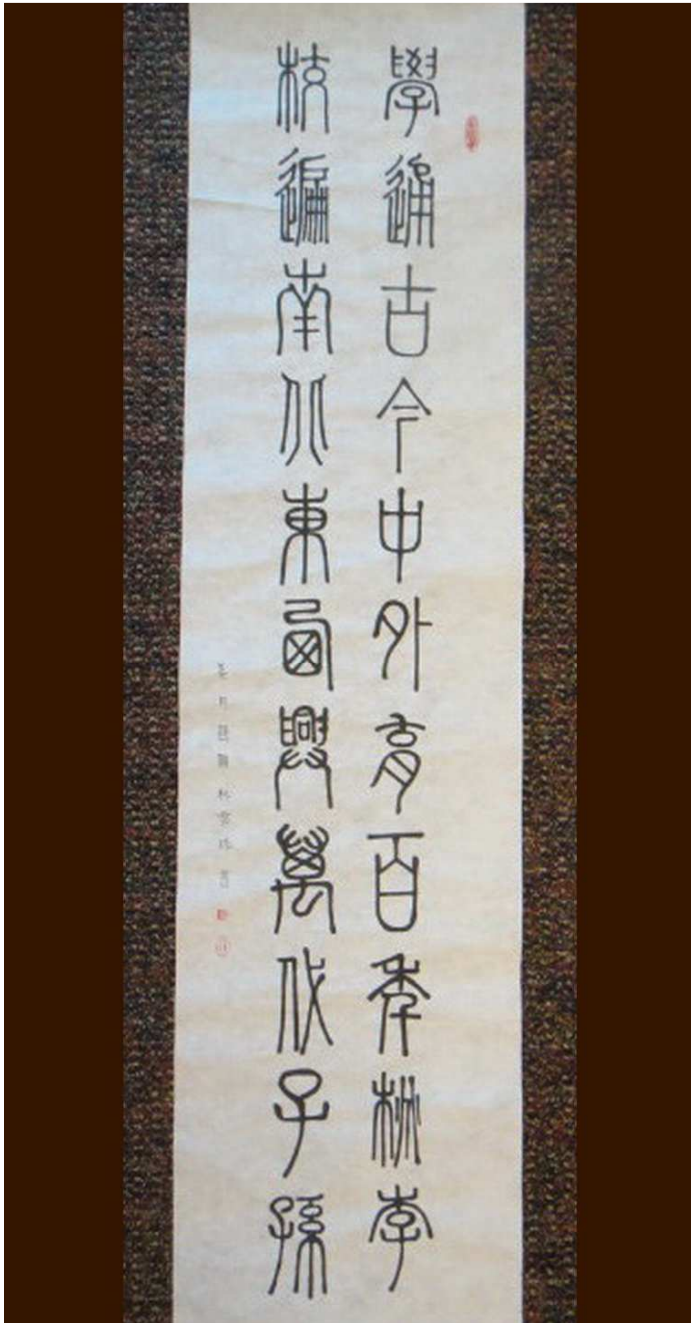 學通古今中外育百年桃李
校遍南北東西興萬代子孫